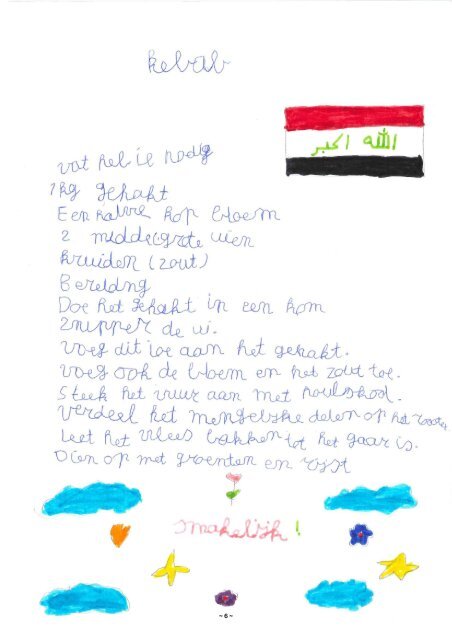 kebab
الله اكبر
wat heb je nodig
1kg gehakt
Een halve kop bloem
2 middelgrote uien
kruiden (zout)
Bereiding
Doe het gehakt in een kom
snipper de ui.
voeg dit toe aan het gehakt.
voeg ook de bloem en het zout toe.
Steek het vuur aan met houtskool.
Verdeel het mengelske delen op het rooster
Leet het vlees bakken tot het gaar is.
Dien op met groenten en rijst
smakelijk!
~6~